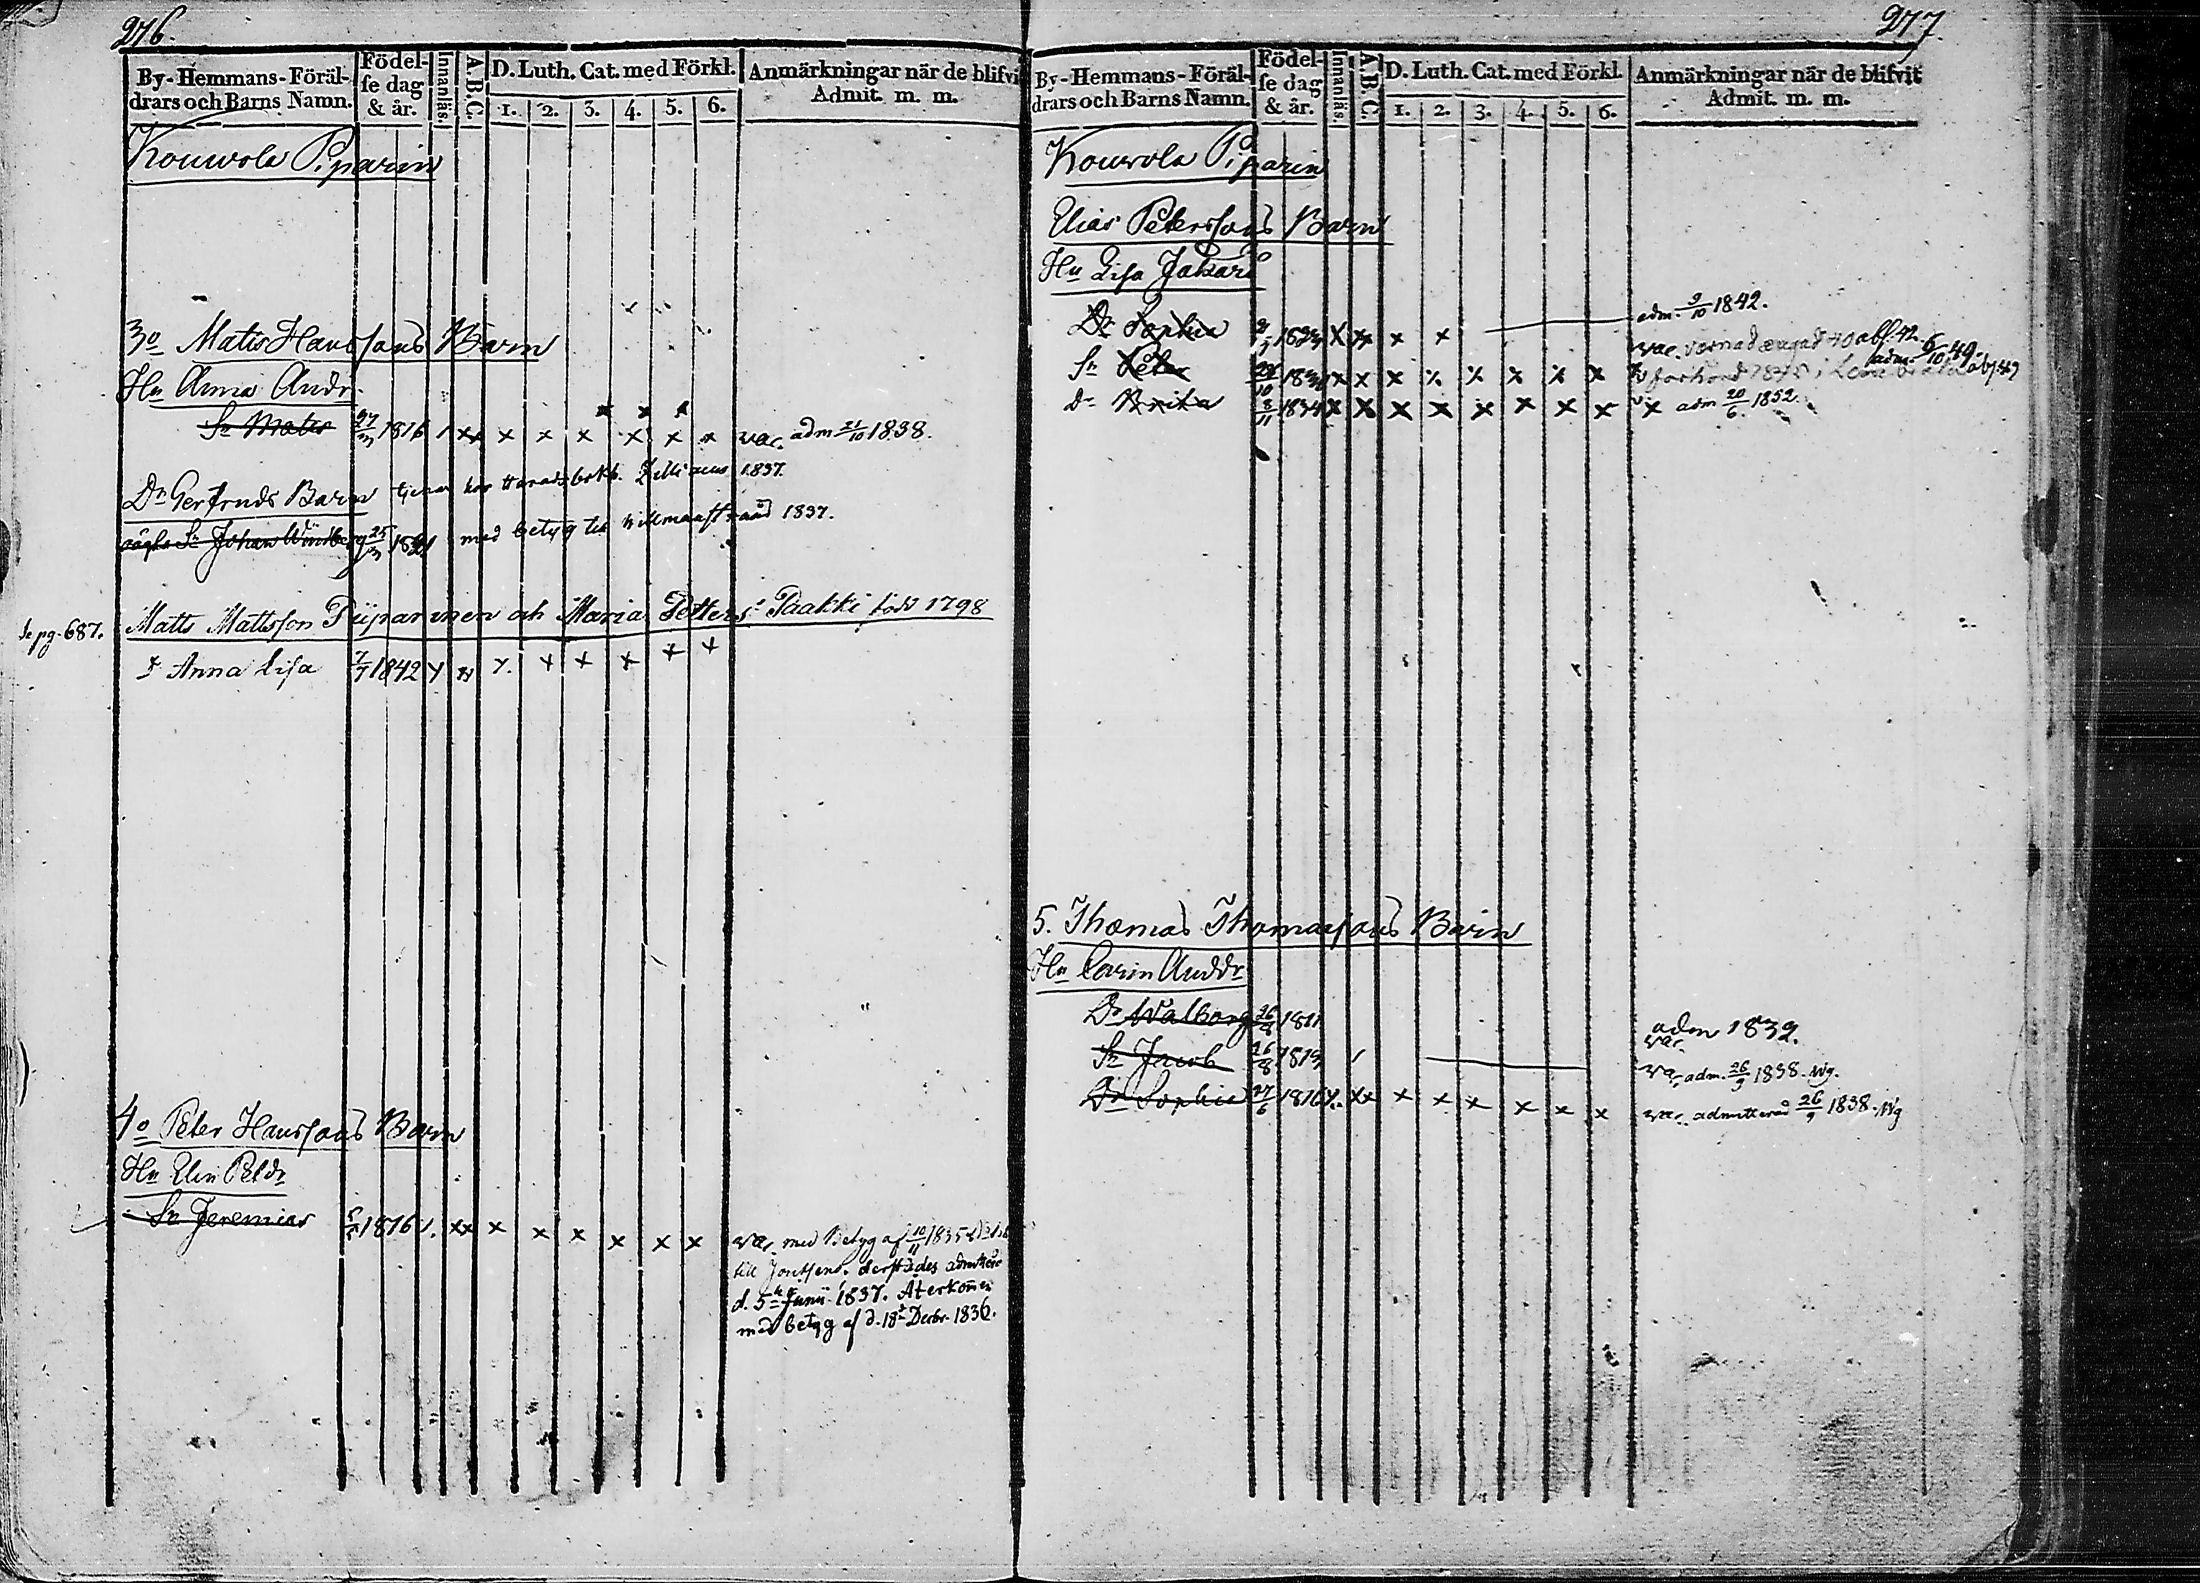 276.
By-Hemmans-Föräl-
drars och Barns Namn.
Födel-
se dag
& år.
Innanläs.
A.B.C.
D. Luth. Cat. med Förkl.
1. 2. 3. 4. 5. 6.
Anmärkningar när de blifvit
Admit. m. m.
Kouwola Piparin
3o Matts Hanssons Barn
Hu Anna Andr.
Sn Matts 27/3 1816 var. adm 21/10 1838.
Dr Gertruds Barn tjenar hos Haradsbokh. Zilliacus 1837.
oägta Sn Johan Windberg 25/3 1821 med betyg till Willmanstrand 1837.
Se pg. 687. Matts Mattsson Piiparinen och Maria Petters: Paakki född 1798
Anna Lisa 7/7 1842 x x x x x x x x
4o Peter Hanssons Barn
Hu Elin Petdr
Sn Jeremias 1816 xx x x x x x x var. med Betyg af 10/11 1835
till Joutseno. derstädes admitterad
d. 5te Junii 1837. Återkommen
med betyg af d. 18de Decbr. 1836.
277.
By-Hemmans-Föräl-
drars och Barns Namn.
Födel-
se dag
& år.
Innanläs.
A.B.C.
D. Luth. Cat. med Förkl.
1. 2. 3. 4. 5. 6.
Anmärkningar när de blifvit
Admit. m. m.
Kouvola Piparin
Elias Peterssons Barn
Hu Lisa Jakobsd
Dr Sophia x xx x x adm. 9/10 1842.
Sn Peter x x x x x x x x adm. 6/10 49.
Dr Brita 8/11 1834 x x x x x x x x x adm 20/6. 1852.
5. Thomas Thomassons Barn
Hu Carin Anddr
Dr Walborg 26/8 1811 adm 1839.
var.
Sn Jacob 26/8 var adm. 26/9 1838. Wg.
Dr Sophia 27/6 1816 x. xx x x x x x x var. admitterad 26/9 1838. Wg